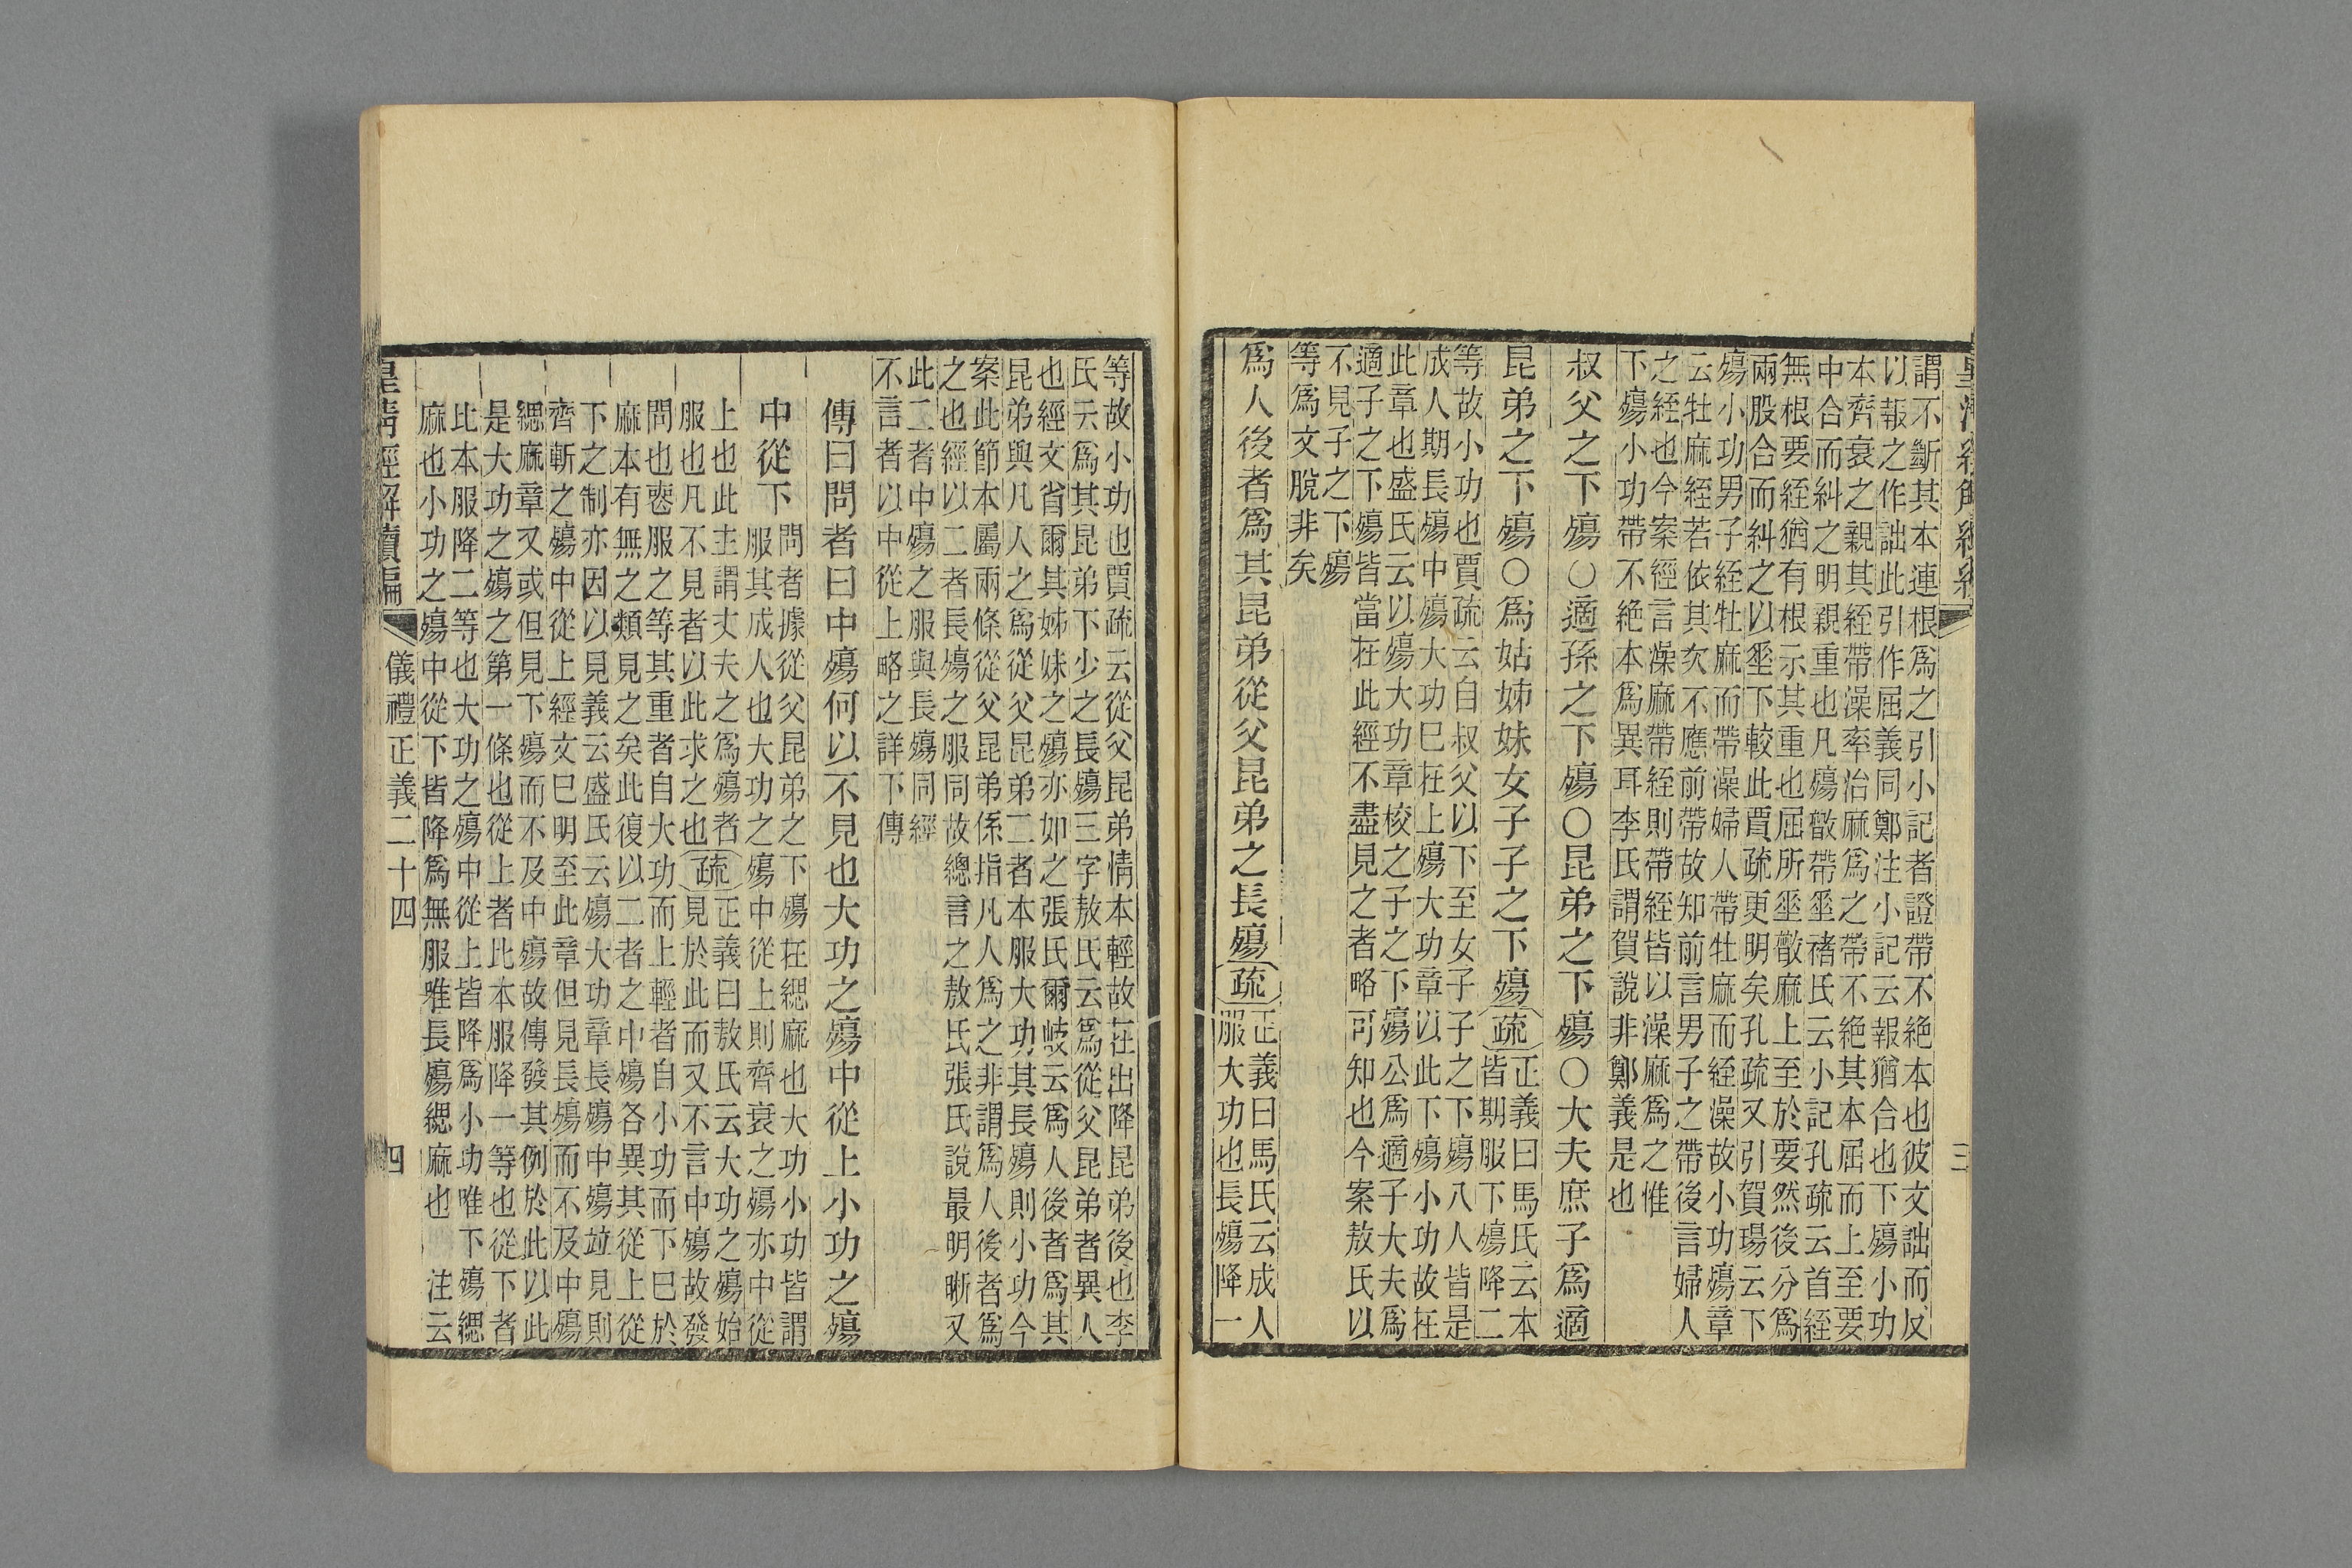 皇清經解續編 三
謂不斷其本連根爲之引小記者證帶不絕本也彼文詘而反
以報之作詘此引作屈義同鄭注小記云報猶合也下殤小功
本齊衰之親其絰帶澡率治麻爲之帶不絕其本屈而上至要
中合而糾之明親重也凡殤散帶垂禇氏云小記孔疏云首絰
無根要絰猶有根示其重也屈所垂散麻上至於要然後分爲
兩股合而糾之以垂下較此賈疏更明矣孔疏又引賀瑒云下
殤小功男子絰牡麻而帶澡婦人帶牡麻而絰澡故小功殤章
云牡麻絰若依其次不應前帶故知前言男子之帶後言婦人
之絰也今案經言澡麻帶絰則帶絰皆以澡麻爲之惟
下殤小功帶不絕本爲異耳李氏謂賀說非鄭義是也
叔父之下殤○適孫之下殤○昆弟之下殤○大夫庶子爲適
昆弟之下殤○爲姑姊妹女子子之下殤疏
正義曰馬氏云本
皆期服下殤降二
等故小功也賈疏云自叔父以下至女子子之下殤八人皆是
成人期長殤中殤大功巳在上殤大功章以此下殤小功故在
此章也盛氏云以殤大功章校之子之下殤公爲適子大夫爲
適子之下殤皆當在此經不盡見之者略可知也今案敖氏以
不見子之下殤
等爲文脫非矣
爲人後者爲其昆弟從父昆弟之長殤疏
正義曰馬氏云成人
服大功也長殤降一
等故小功也賈疏云從父昆弟情本輕故在出降昆弟後也李
氏云爲其昆弟下少之長殤三字敖氏云爲從父昆弟者異人
也經文省爾其姊妹之殤亦如之張氏爾岐云爲人後者爲其
昆弟與凡人之爲從父昆弟二者本服大功其長殤則小功今
案此節本屬兩條從父昆弟係指凡人爲之非謂爲人後者爲
之也經以二者長殤之服同故總言之敖氏張氏說最明晰又
此二者中殤之服與長殤同經
不言者以中從上略之詳下傳
傳曰問者曰中殤何以不見也大功之殤中從上小功之殤
中從下
問者據從父昆弟之下殤在緦麻也大功小功皆謂
服其成人也大功之殤中從上則齊衰之殤亦中從
上也此主謂丈夫之爲殤者
服也凡不見者以此求之也
疏
正義曰敖氏云大功之殤始
見於此而又不言中殤故發
問也䘮服之等其重者自大功而上輕者自小功而下巳於
麻本有無之類見之矣此復以二者之中殤各異其從上從
下之制亦因以見義云盛氏云殤大功章長殤中殤竝見則
齊斬之殤中從上經文巳明至此章但見長殤而不及中殤
緦麻章又或但見下殤而不及中殤故傳發其例於此以此
是大功之殤之第一條也從上者比本服降一等也從下者
比本服降二等也大功之殤中從上皆降爲小功唯下殤緦
麻也小功之殤中從下皆降爲無服唯長殤緦麻也 注云
皇清經解續編 儀禮正義二十四 四